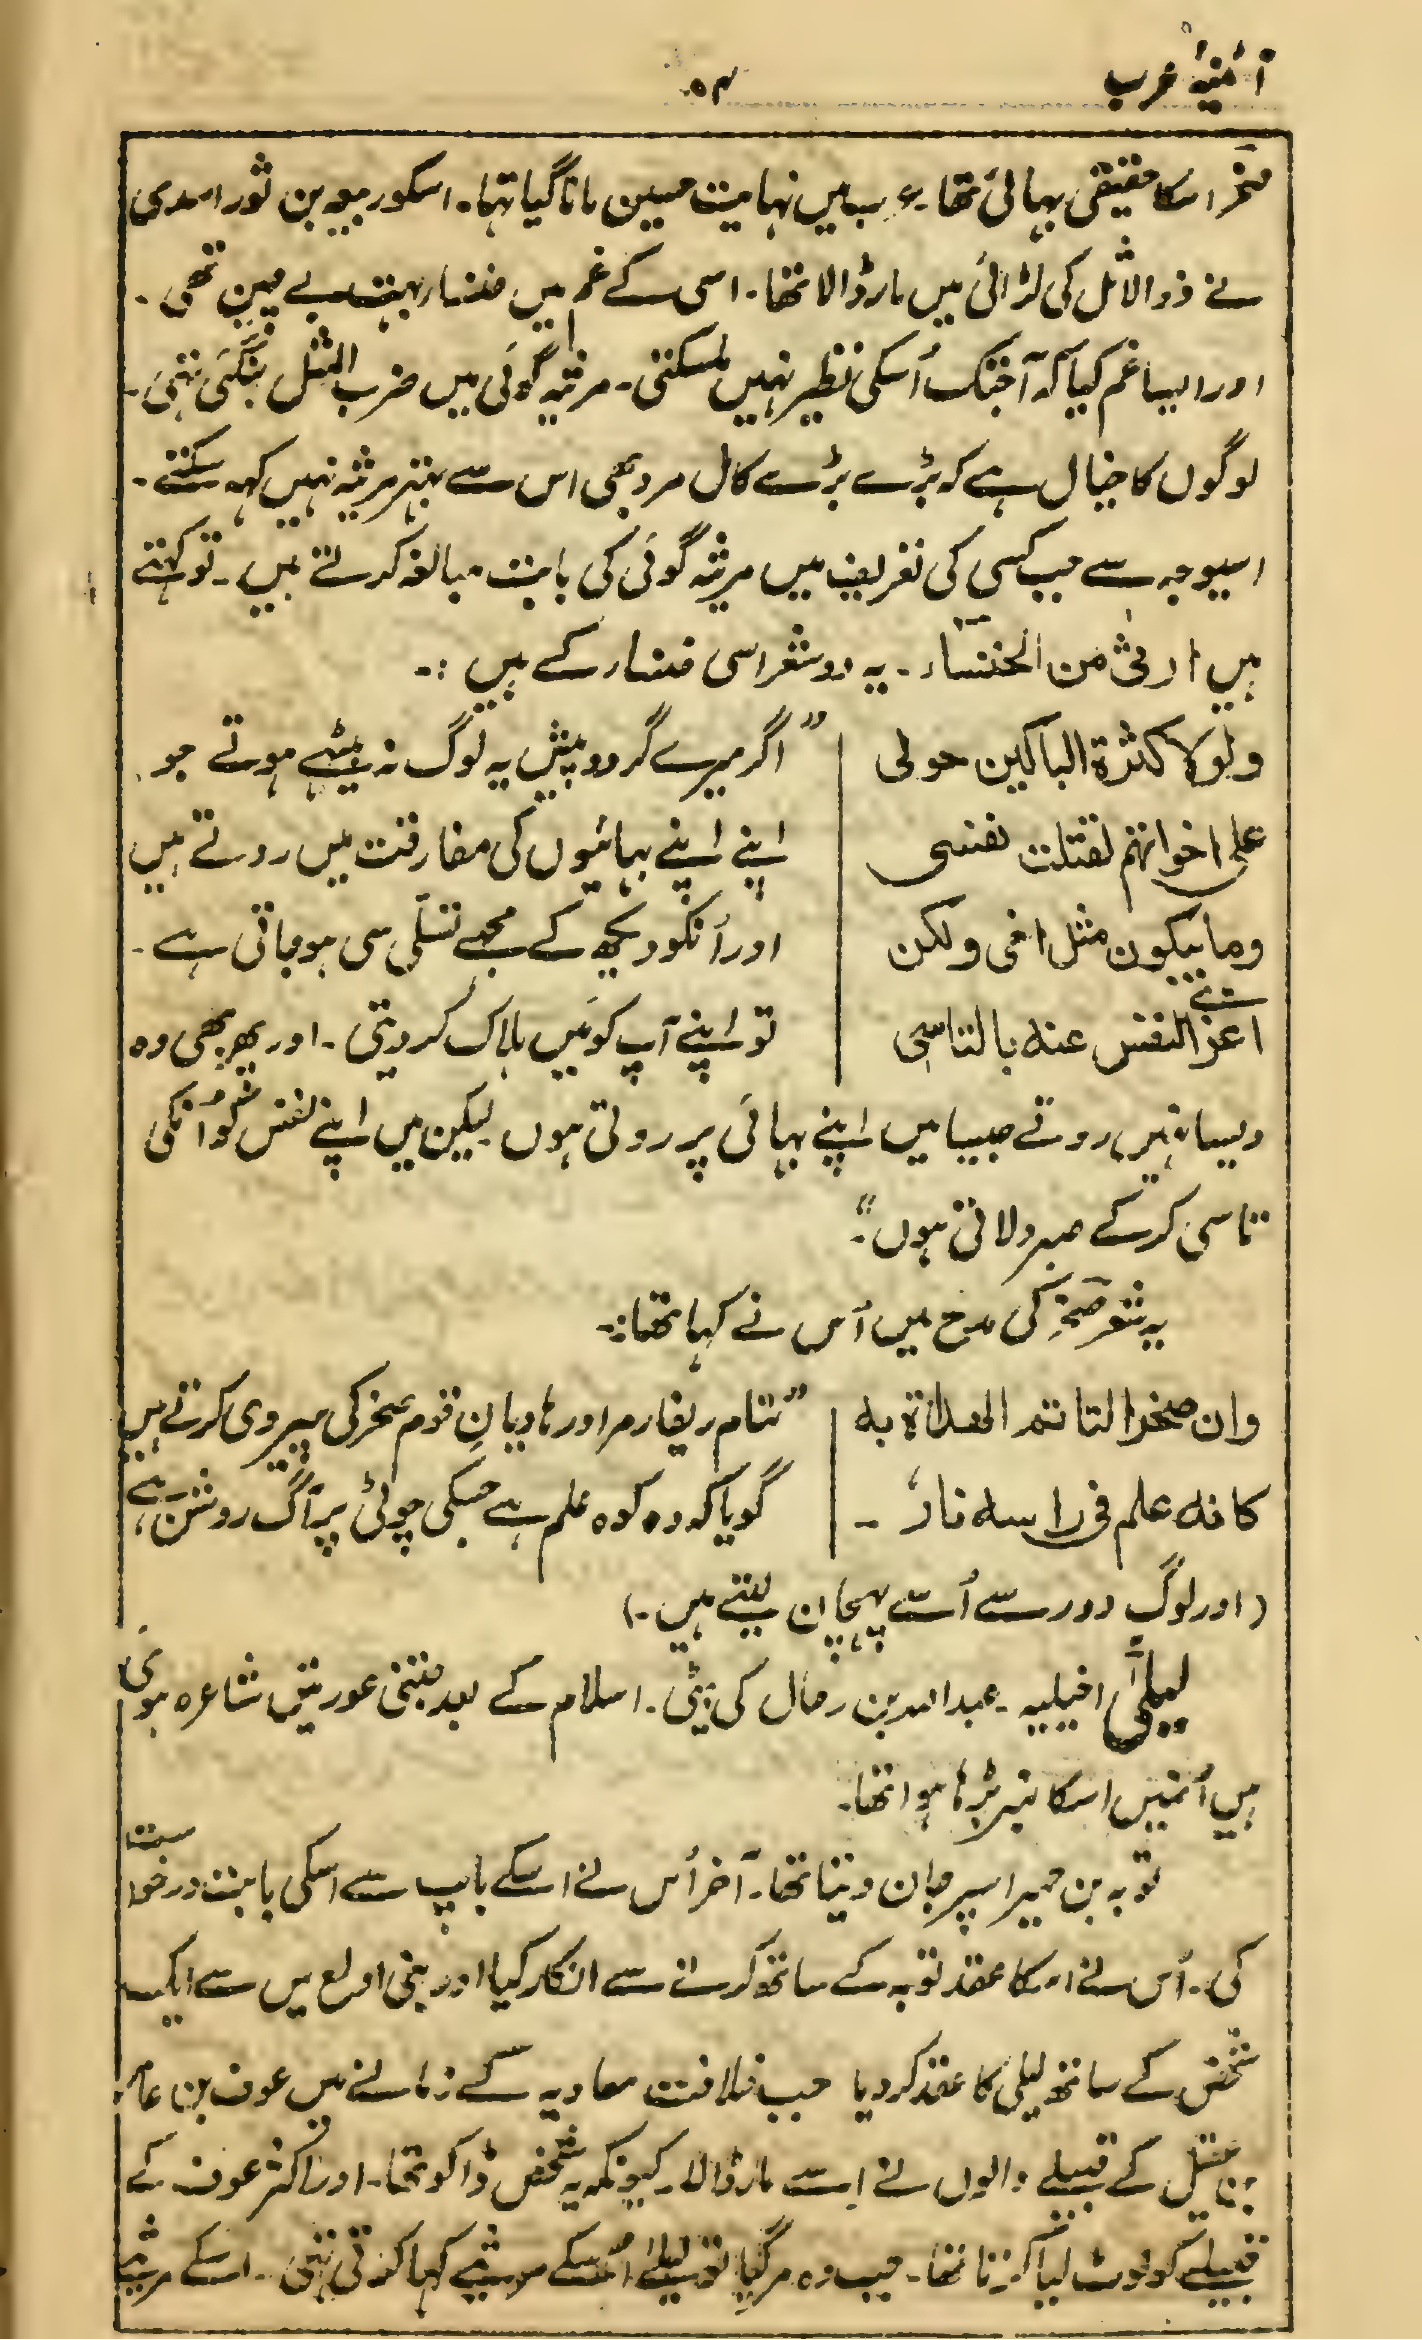 آئینۂ عرب
۵۴
صخر اسکا حقیقی بہائی تھا۔ عرب میں نہایت حسین مانا گیا تہا۔ اسکو ربیعہ بن ثور اسدی
نے ذوالاثل کی لڑائی میں مار ڈالا تھا۔ اسی کے غم میں خنساء بہت بے چین تھی۔
اور ایسا غم کیا کہ آجتک اُسکی نظیر نہیں ملسکتی۔ مرثیہ گوئی میں ضرب المثل بنگئی تہی۔
لوگوں کا خیال ہے کہ بڑے بڑے کامل مرد بھی اس سے بہتر مرثیہ نہیں کہہ سکتے۔
اسیوجہ سے جب کسی کی تعریف میں مرثیہ گوئی کی بابت مبالغہ کرتے ہیں۔ تو کہتے
ہیں ارثیٰ من الخنساء۔ یہ دو شعر اسی خنساء کے ہیں :۔
ولولا کثرۃ الباکین حولی
علی اخوانھم لقتلت نفسی
وما یبکون مثل اخی ولکن
اعزالنفس عنہ بالتاسی
”اگر میرے گرد و پیش یہ لوگ نہ بیٹھے ہوتے جو
اپنے اپنے بہائیوں کی مفارقت میں روتے ہیں
اور اُنکو دیکھ کے مجھے تسلّی سی ہو جاتی ہے۔
تو اپنے آپ کو میں ہلاک کر دیتی۔ اور پھر بھی وہ
ویسا نہیں روتے جیسا میں اپنے بہائی پر روتی ہوں لیکن میں اپنے نفس کو اُنکی
تاسی کرکے صبر دلاتی ہوں“۔
یہ شعر صخر کی مدح میں اُس نے کہا تھا:۔
وان صخرا لتاتم الھداۃ بہ
کانہ علم فی راسہ نار ۔
”تمام ریفارمر اور ہادیانِ قوم صخر کی پیروی کرتے ہیں
گویا کہ وہ کوہ علم ہے جسکی چوٹی پر آگ روشن ہے“
(اور لوگ دور سے اُسے پہچان لیتے ہیں۔)
لیلیٰ اخیلیہ۔ عبداللہ بن رحال کی بیٹی۔ اسلام کے بعد جتنی عورتیں شاعرہ ہوئی
ہیں اُنمیں اسکا نمبر بڑہا ہوا تھا۔
توبہ بن حمیر اسپر جان دیتا تھا۔ آخر اُس نے اسکے باپ سے اسکی بابت درخواست
کی۔ اُس نے اسکا عقد توبہ کے ساتھ کرنے سے انکار کیا اور بنی اولع میں سے ایک
شخص کے ساتھ لیلی کا عقد کر دیا جب خلافت معاویہ کے زمانے میں عوف بن عامر
بن عقیل کے قبیلے والوں نے اِسے مار ڈالا۔ کیونکہ یہ شخص ڈاکو تھا۔ اور اکثر عوف کے
قبیلے کو لوٹ لیا کرتا تھا۔ جب وہ مر گیا تو لیلےٰ اُسکے مرثیے کہا کرتی تہی۔ اسکے مرثیہ